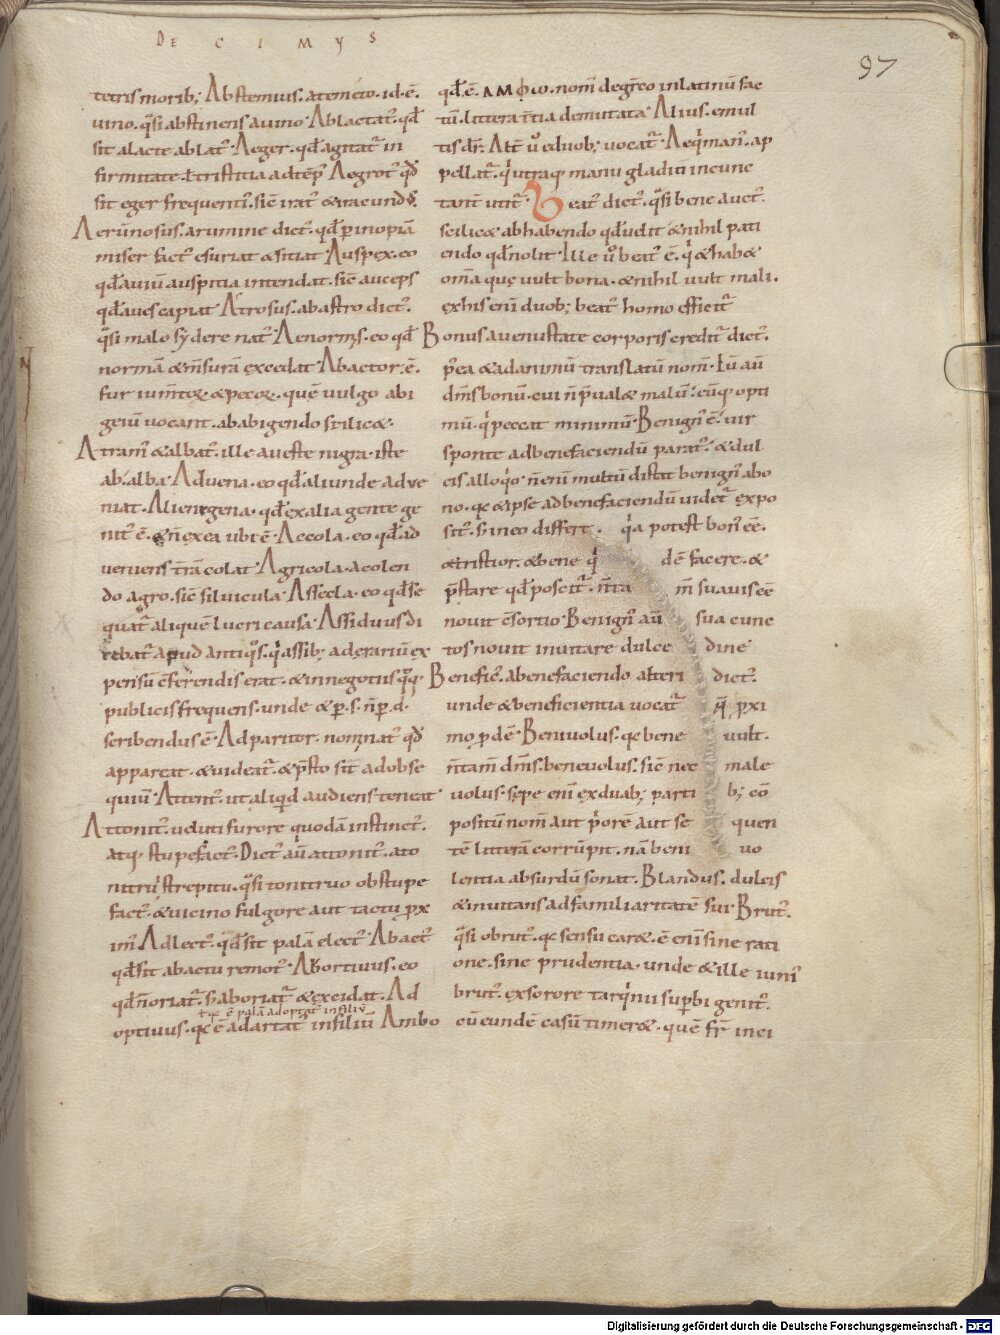 DECIMUS
97
tetris morib; Abstemius. atemeto. id. ē.
uino. q̄si abstinens a uino. Ablactat᷒. qđ
sit a lacte ablat᷒. Aeger. qđ agitat᷒ in
firmitate. ł tristitia ad tēp᷒. Aegrot᷒ qđ
sit eger frequenti᷒. sic̄ irat᷒ & iracund᷒.
Aerūnosus. a rumine dict᷒. qđ p̱ inopiā
miser fact᷒ esuriat & sitiat. Auspex. eo
qđ auiū auspitia intendat. sic̄ auceps
qđ aues capiat. Atrosus. ab astro dict᷒.
q̄si malo sydere nat᷒. Aenormis. eo qđ
normā & m̄surā excedat. Abactor. ē.
fur ium̄toꝝ & pecoꝝ. quē uulgo abi
geiū uocant. ab abigendo scilic&.
Atrat᷒ & albat᷒. ille a ueste nigra. iste
ab alba. Aduena. eo qđ aliunde adue
niat. Alienigena. qđ ex alia gente ge
nit᷒ ē. & n̄ ex ea ubi ē. Accola. eo qđ ad
ueniens t̄rā colat. Agricola. a colen
do agro. sic̄ siluicula. Assecla. eo qđ se
quat᷒ aliquē lucri causa. Assiduus di
cebat᷒ apud antiq᷒s. qⁱ assib; ad erariū ex
pensū c̄ferendis erat. & in negotiis q᷒q᷒
publicis frequens. unde & p̱. s. n̄ p̱. d.
scribendus ē. Adparitor. nominat᷒ qđ
appareat. & uideat᷒. & p̄sto sit ad obse
quiū. Attent᷒. ut aliqⁱd audiens teneat.
Attonit᷒. ueluti furore quodā instinct᷒.
atq; stupefact᷒. Dict᷒ aū attonit᷒. a to
nitruⁱ strepitu. q̄si tonitruo obstupe
fact᷒. & uicino fulgore aut tactu p̱x
im᷒. Adlect᷒. qđ sit palā elect᷒. Abact᷒
qđ sit ab actu remot᷒. Abortiuus. eo
qđ n̄ oriat᷒. s; aboriat᷒ & excidat. Ad
ł qđ ē palā adoptat᷒ in filiū
optiuus. qđ ē adartat᷒ in filiū. Ambo
qđ. ē. ΑΜΦω. nom̄ de grēco in latinū fac
tū. littera t̄tia demutata. Alius. e mul
tis dr̄. Alt̄ u᷒ e duob; uocat᷒. Aeqⁱman᷒. ap
pellat᷒. qⁱ utraq; manu gladium cunc
tant᷒ utit᷒. Beat᷒ dict᷒. q̄si bene auct᷒.
scilic& ab habendo qđ uelit & nihil pati
endo qđ nolit. Ille u᷒ beat᷒ ē. qⁱ & hab&
om̄a quę uult bona. & nihil uult mali.
ex his eni duob; beat᷒ homo efficit᷒
Bonus a uenustate corporis credit᷒ dict᷒.
p᷒ea & ad animū translatū nom̄. Eū aū
dm̄s bonū. cui n̄ p̄ual& malū. eūq; opti
mū. qⁱ peccat minimū. Benign᷒ ē. uir
sponte ad benefaciendū parat᷒. & dul
cis alloqⁱo. n̄ eni multū distat benign᷒ a bo
no. qđ & ipse ad benefaciendū uidet᷒ expo
sit᷒. S; in eo differt. qⁱa potest bon᷒ eē.
& tristior. & bene qⁱdē facere. &
p̄stare qđ poscit᷒. n̄ tam̄ suauis eē
nouit c̄sortio. Benign᷒ aū sua cunc
tos nouit inuitare dulcedine
Benefic᷒. a benefaciendo alteri dict᷒.
unde & beneficientia uocat᷒ quę p̱xi
mo p̱dē. Beniuolus. qđ bene uult.
n̄ tam̄ dm̄s. beneuolus. sic̄ nec male
uolus. sępe eni ex duab; partib; cō
positū nom̄ aut p᷒orē aut sequen
tē litterā corrūpit. nā beniuo
lentia absurdū sonat. Blandus. dulcis
& inuitans ad familiaritatē sui. Brut᷒.
q̄si obrut᷒. qđ sensu car&. ē eni sine rati
one. sine prudentia. unde & ille iuni᷒
brut᷒. ex sorore tarqⁱnii sup̱bi genit᷒.
cū eundē casū timer&. quē fr̄ inci
Digitalisierung gefördert durch die Deutsche Forschungsgemeinschaft - DFG